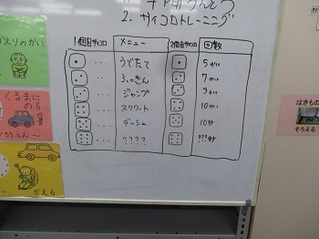 2. サイコロトレーニング
1回目サイコロ メニュー 2回目サイコロ 回数
・・・ うでたて 5かい
・・・ ふっきん 7かい
・・・ ジャンプ 9かい
・・・ スクワート 10かい
・・・ ダッシュ 10秒
・・・ ???? ???秒
えりのかい
くるまに
のる
はきもの
そろえる
かえる